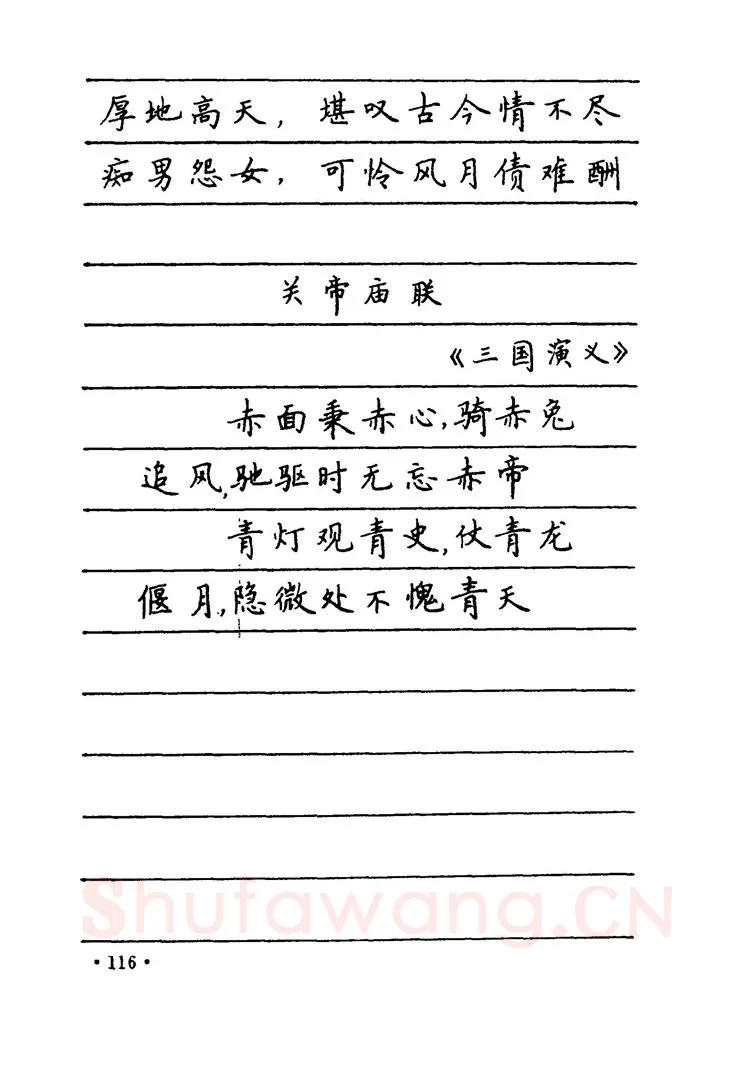 厚地高天，堪叹古今情不尽
痴男怨女，可怜风月债难酬
关帝庙联
《三国演义》
赤面秉赤心,骑赤兔
追风,驰驱时无忘赤帝
青灯观青史,仗青龙
偃月,隐微处不愧青天
Shufawang.CN
·116·